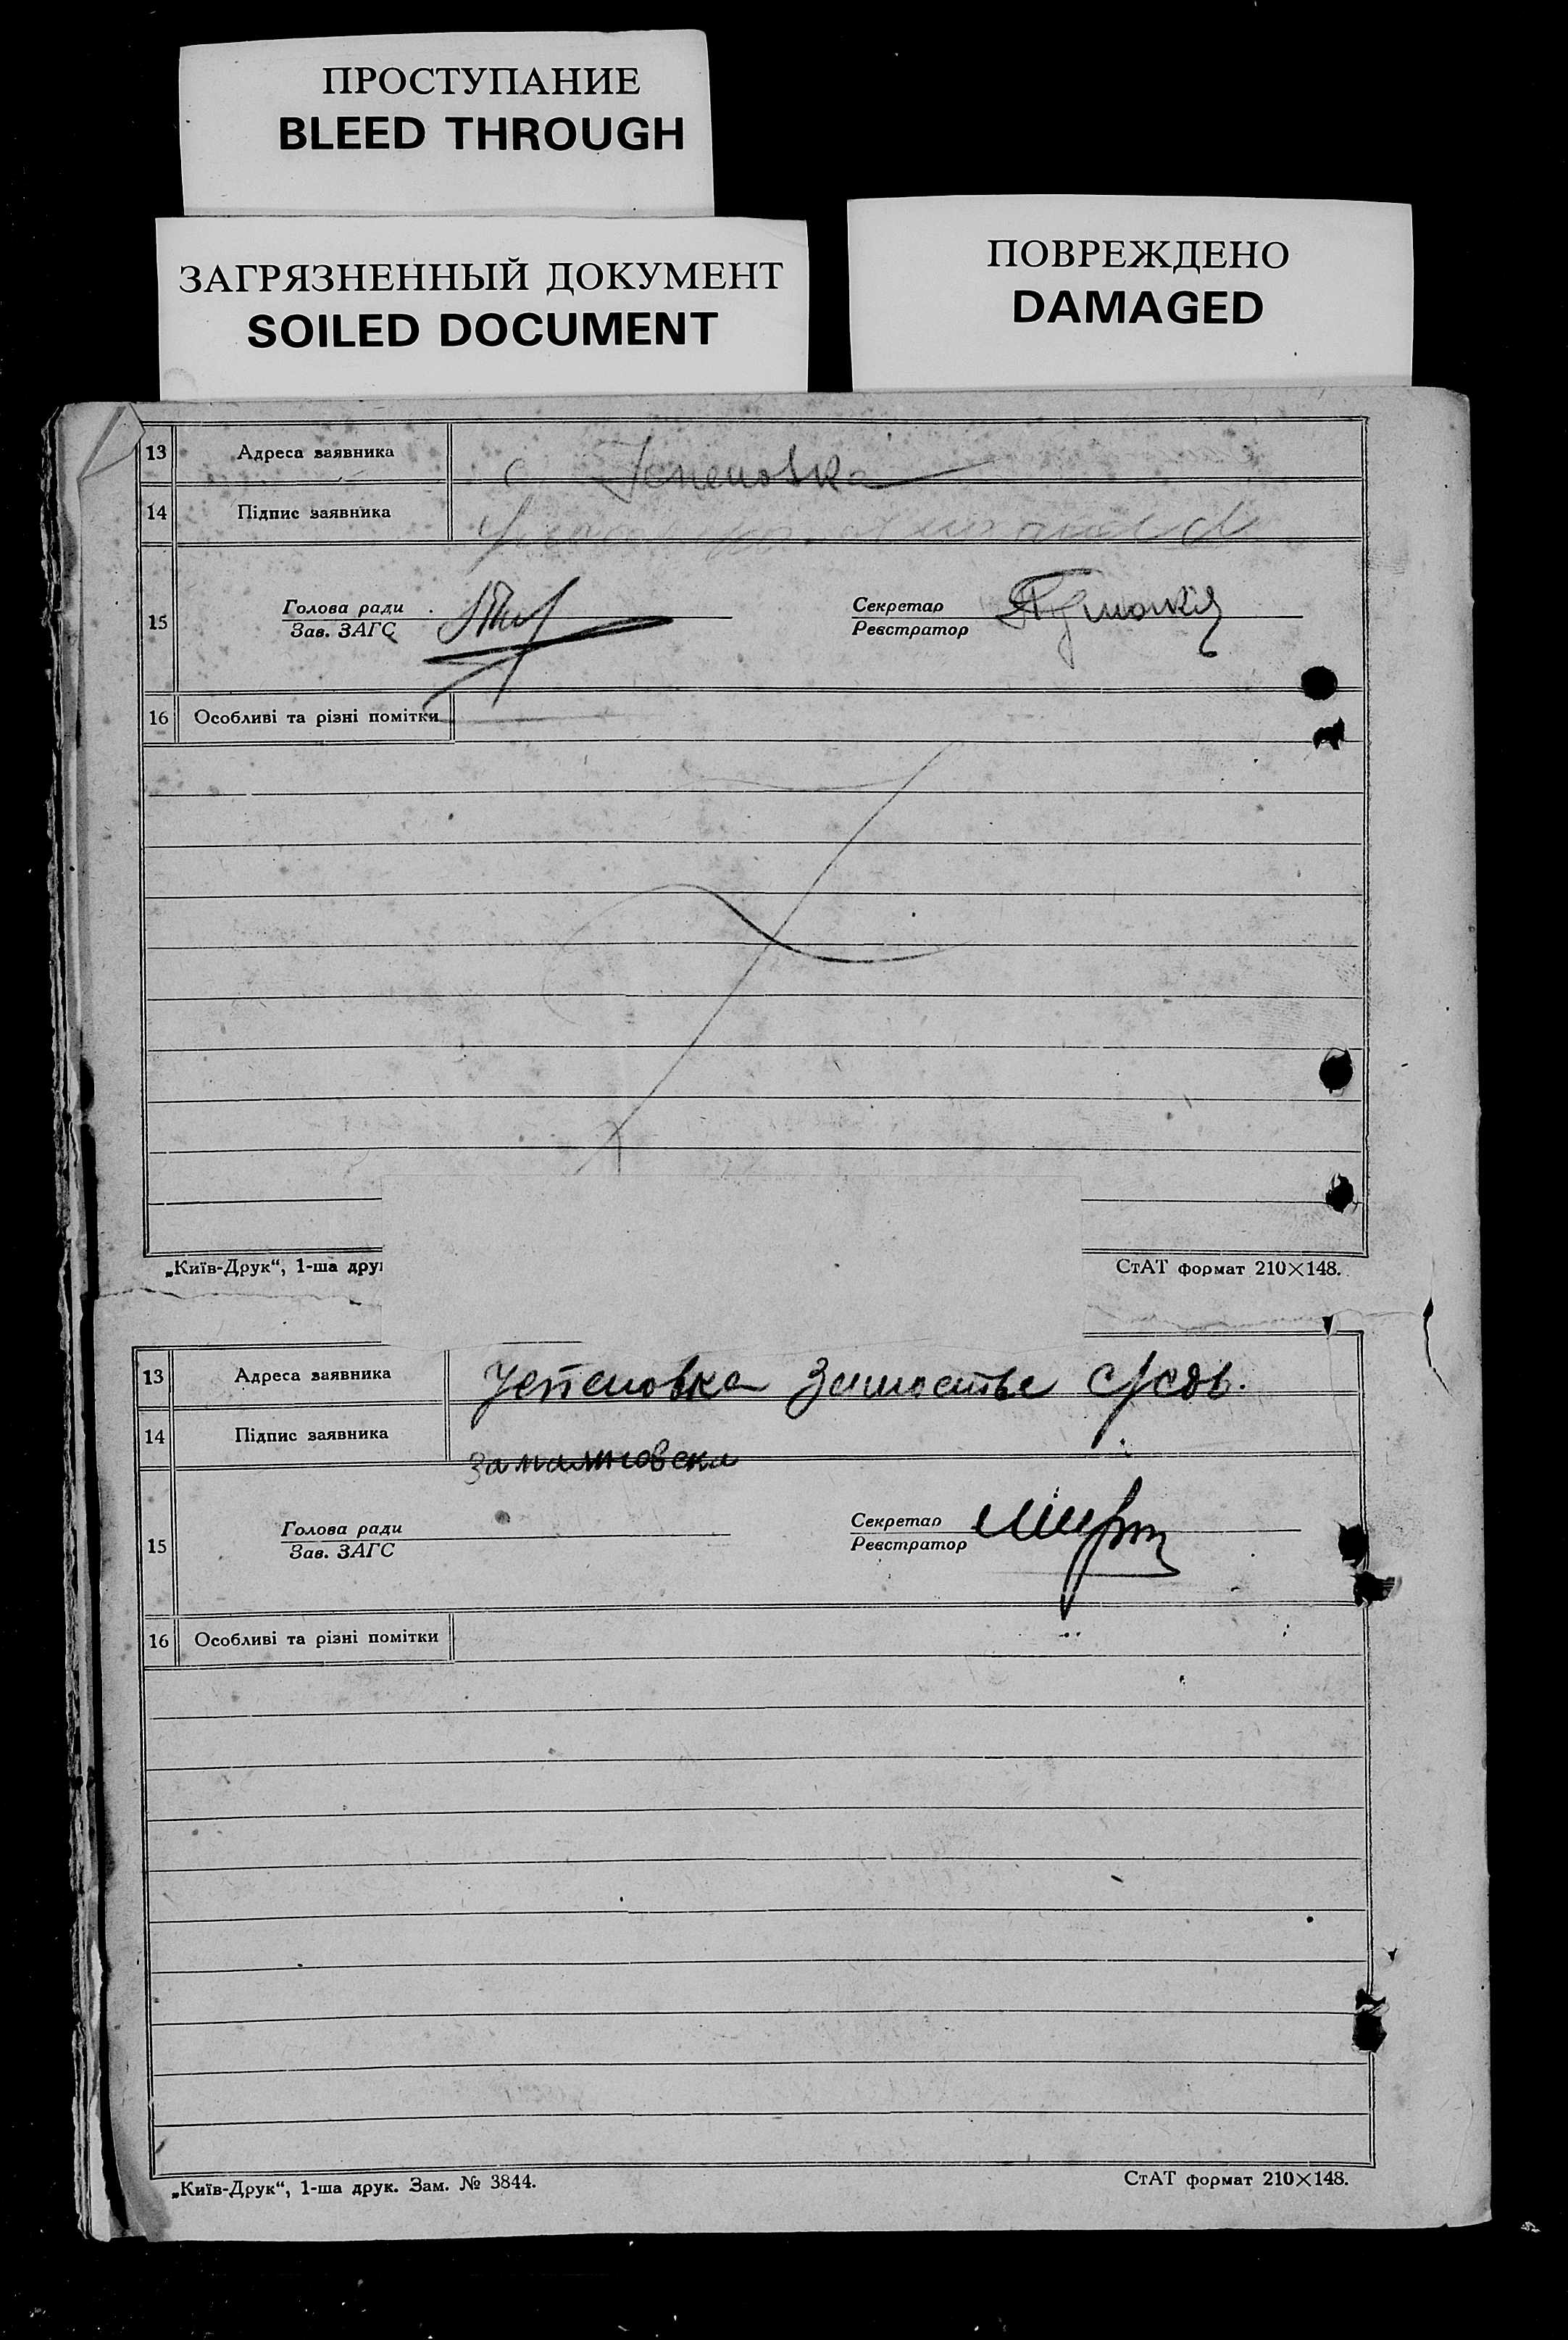 ПРОСТУПАНИЕ
BLEED THROUGH
ЗАГРЯЗНЕННЫЙ ДОКУМЕНТ
SOILED DOCUMENT
ПОВРЕЖДЕНО
DAMAGED
13 Адреса заявника с.
14 Підпис заявника
15 Голова ради Секретар
Зав. ЗАГС Реєстратор
16 Особливі та різні помітки
„Київ-Друк“, 1-ша дру СтАТ формат 210×148.
13 Адреса заявника Успеновка
14 Підпис заявника
15 Голова ради Секретар
Зав. ЗАГС Реєстратор
16 Особливі та різні помітки
„Київ-Друк“, 1-ша друк. Зам. № 3844. СтАТ формат 210×148.